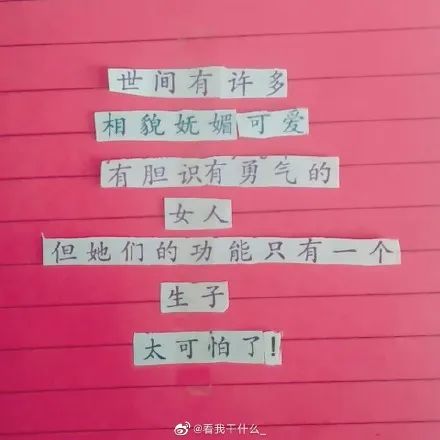 世间有许多
相貌妩媚可爱
有胆识有勇气的
女人
但她们的功能只有一个
生子
太可怕了!
@看我干什么_